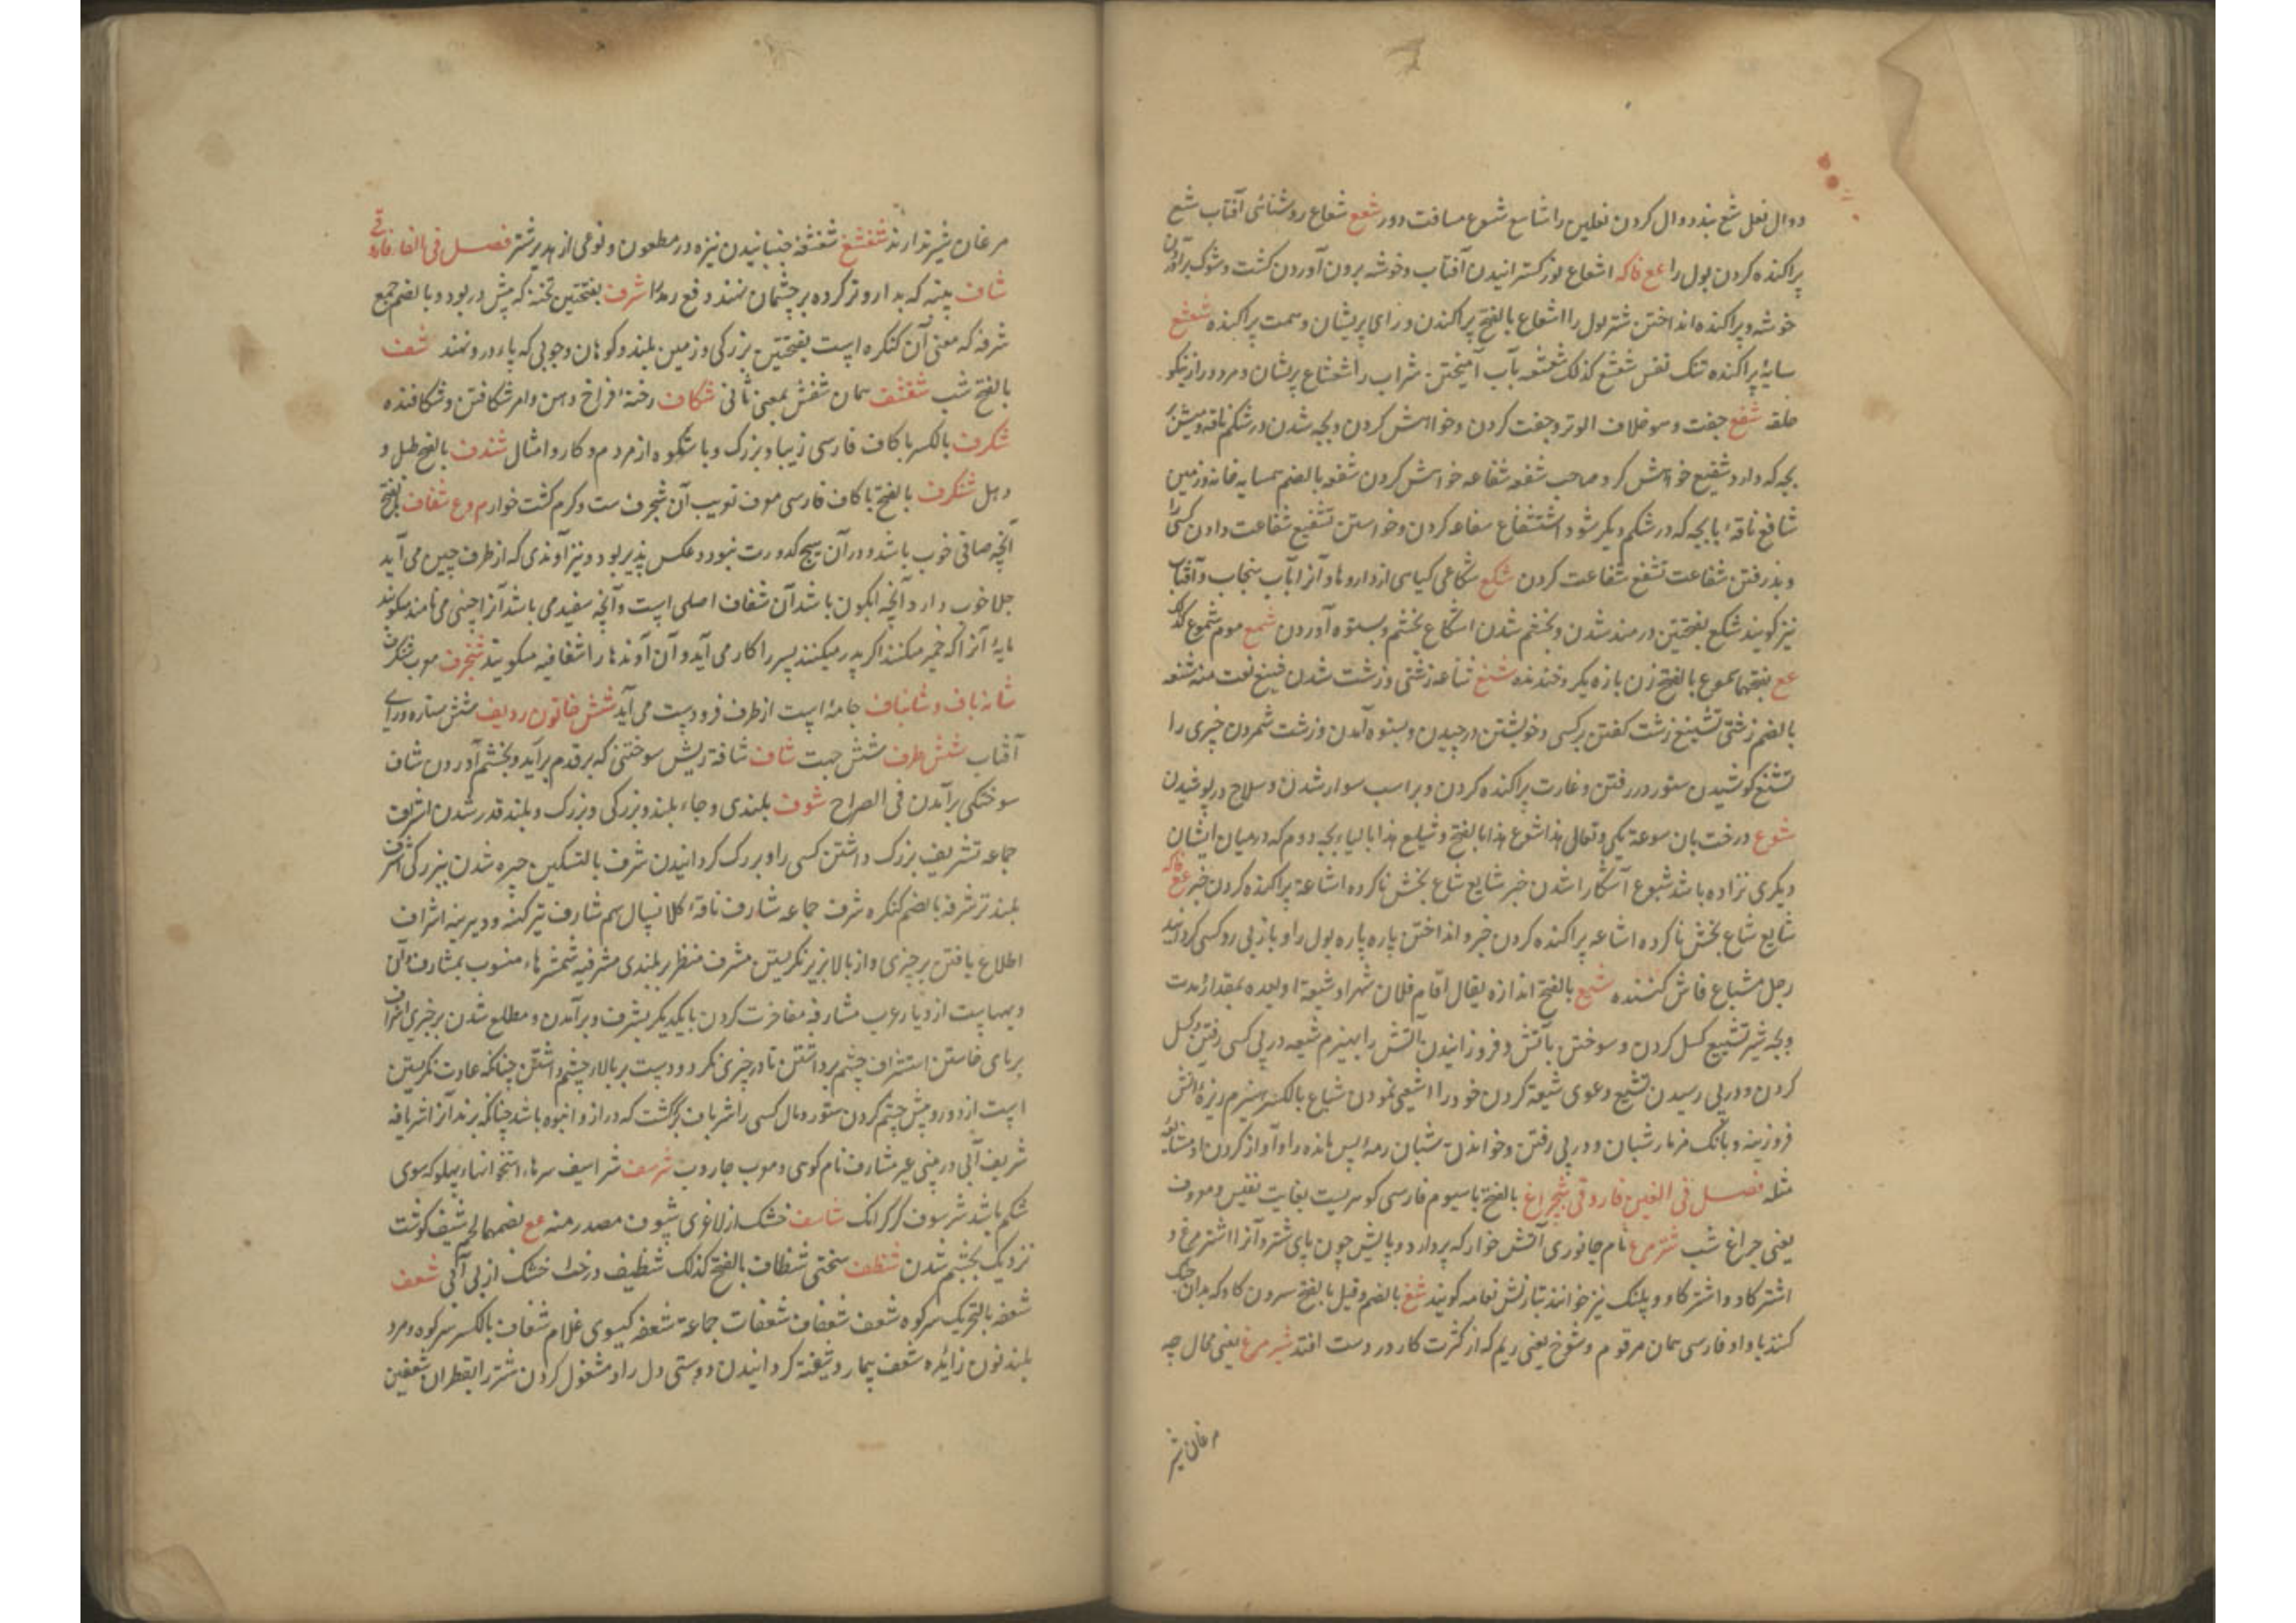 دوال نعل شع بند دوال کردن نعلین را شاسع شسوع مسافت دور شعع شعاع روشنائی آفتاب شع
پراکنده کردن بول را عع فاکه اشعاع نور کسترانیدن آفتاب و خوشه برون آوردن کشت و شوک برآوردن
خوشه و پراکنده انداختن شتر بول را اشعاع بالفتح پراکندن و رای پریشان و همت پراکنده شعشع
سایهٔ پراکنده تنک نفس شعشع کذلک شعشعه بآب آمیختن شراب را شعشاع پریشان و مرد دراز نیکو
خلقه شفع جفت و هو خلاف الوتر و جفت کردن و خواهش کردن و بچه شدن در شکم ناقه و میش
بچه که دارد شفیع خواهش کر و صاحب شفعه شفاعه خواهش کردن شفعه بالضم همسایه خانه و زمین
شافع ناقهٔ با بچه که در شکم دیکر شود استشفاع شفاعه کردن و خواستن تشفیع شفاعت دادن کسی را
و پذرفتن شفاعت تشفع شفاعت کردن شکع شکاعی کیاهی از داروها و آنرا
نیز کویند شکع بفتحتین درمند شدن و بخشم شدن اشکاع بخشم و بستوه آوردن شمع موم شموع کذلک
عع بفتحهما شموع بالفتح زن بازیکر و خندنده شنع شناعه زشتی و زشت شدن فشنیع نعت منه شنعه
بالضم زشتی تشنیع زشت کفتن بر کسی و خویشتن درچیدن و بستوه آمدن و زشت شمردن چیزی را
تشنع کوشیدن ستور در رفتن و غارت پراکنده کردن و بر اسب سوار شدن و سلاح در پوشیدن
شوع درخت بان سوعة یکی و تعالی هذا شوع هذا بالفتح و شیع هذا بالیاء بچه دوم که در میان ایشان
دیکری نزاده باشد شیوع آشکارا شدن خبر شایع شاع بخش ناکرده اشاعة پراکنده کردن خبر عع فاکه
شایع شاع بخش ناکرده اشاعه پراکنده کردن خبر و انداختن پاره پاره بول را و باز پی رو کسی کردانید
رجل مشیاع فاش کننده شیع بالفتح اندازه یقال اقام فلان شهرا و شیعه او بعده بمقدار مدت
و بچه شیر تشییع کسل کردن و سوختن بآتش و فروزانیدن آتش را بهیزم شیعه در پی کسی رفتن و کسل
کردن و در پی رسیدن تشیع دعوی شیعة کردن خود را شیعی نمودن شیاع بالکسر هیزم ریزهٔ آتش
فروزینه و بانک مزمار شبان و در پی رفتن و خواندن شبان رمهٔ پس مانده را و آواز کردن او مشایعه
مثله فصل فی الغین فاروقی شبچراغ بالفتح با سیوم فارسی کوهریست بغایت نفیس و معروف
یعنی چراغ شب شترمرغ نام جانوری آتش خوار که پر دارد و پایش چون پای شتر و آنرا اشترمرغ و
اشترکاو و اشترکاو و پلنک نیز خوانند تبازیش نعامه کویند شغ بالضم و قیل بالفتح سرون کاو که بدان جنک
کنند با واو فارسی همان مرقوم و شوخ یعنی ریم که از کثرت کار در دست افتد شیرمرغ یعنی محال چه
مرغان شیر
مرغان شیر ندارند شغشغ شغشغه جنبانیدن نیزه در مطعون و نوعی از هدیر شتر فصل فی الفا فاروقی
شاف پنبه که بدارو تر کرده بر چشمان نهند دفع رمد را شرف بفتحتین تخته که پیش در بود و بالضم جمع
شرفه که معنی آن کنکره است بفتحتین بزرکی و زمین بلند و کوهان و چوبی که پاء در و نهند شف
بالفتح شب شفشف همان شفش بمعنی ثانی شکاف رخنهٔ فراخ دهن و امر شکافتن و شکافنده
شکرف بالکسر با کاف فارسی زیبا و بزرک و با شکوه از مردم و کار و امثال شندف بالفتح طبل و
دهل شنکرف بالفتح با کاف فارسی معروف تعریب آن شنجرف ست و کرم کشت خوار م وع شفاف بالفتح
آنچه صافی خوب باشد و در آن هیچ کدورت نبود و عکس پذیر بود و نیز آوندی که از طرف چین می آید
جلا خوب دارد آنچه آبکون باشد آن شفاف اصلی است و آنچه سفید می باشد آنرا چینی می نامند میکویند
مایهٔ آنرا که خمیر میکنند اکر پدر میکنند پسر را کار می آید و آن آوندها را شفافیه میکویند شنجرف معرب شنکرف
شانه باف و شانباف جامهٔ است از طرف فرودست می آید شش خاتون ردیف شش ستاره ورای
آفتاب شش طرف شش جهت شاف شافة ریش سوختنی که بر قدم برآید و بخشم آوردن شاف
سوختکی برآمدن فی الصراح شرف بلندی و جاء بلند و بزرکی و بزرک و بلند قدر شدن اشراف
جماعه تشریف بزرک داشتن کسی را و بزرک کردانیدن شرف بالتسکین چیره شدن ببزرکی اشرف
بلندتر شرفه بالضم کنکره شرف جماعه شارف ناقهٔ کلانسال سهم شارف تیر کهنه و دیرینه اشراف
اطلاع یافتن بر چیزی و از بالا بزیر نکریستن مشرف منظر بلندی مشرفیه شمشیرهاء منسوب بمشارف و آن
دیهاییست از دیار عرب مشارفه مفاخرت کردن با یکدیکر بشرف و برآمدن و مطلع شدن بر چیزی اشراف
بر پای خاستن استشراف چشم برداشتن تا در چیزی نکرد و دست بر بالاء چشم داشتن چنانکه عادت نکریستن
است از دور و پیش چشم کردن ستور و مال کسی را شریاف برک کشت که دراز و انبوه باشد چنانکه برند آنرا شریافه
شریف آبی در بنی نمیر مشارف نام کوهی و معرب جاروب شرسف شراسیف سرهاء استخوانهاء پهلو که سوی
شکم باشد شرسوف شاسف خشک از لاغری شسوف مصدر منه عع بضمهما لحم شسیف کوشت
نزدیک بخشک شدن شظف سختی شظاف بالفتح کذلک شظیف درخت خشک از بی آبی شعف
شعفه بالتحریک سر کوه شعف شعاف شعفات جماعة شعفه کیسوی غلام شعاف بالکسر سر کوه و مرد
بلند نون زائده شعف بیمار و شیفته کردانیدن دوستی دل را و مشغول کردن شتر را بقطران شعفین